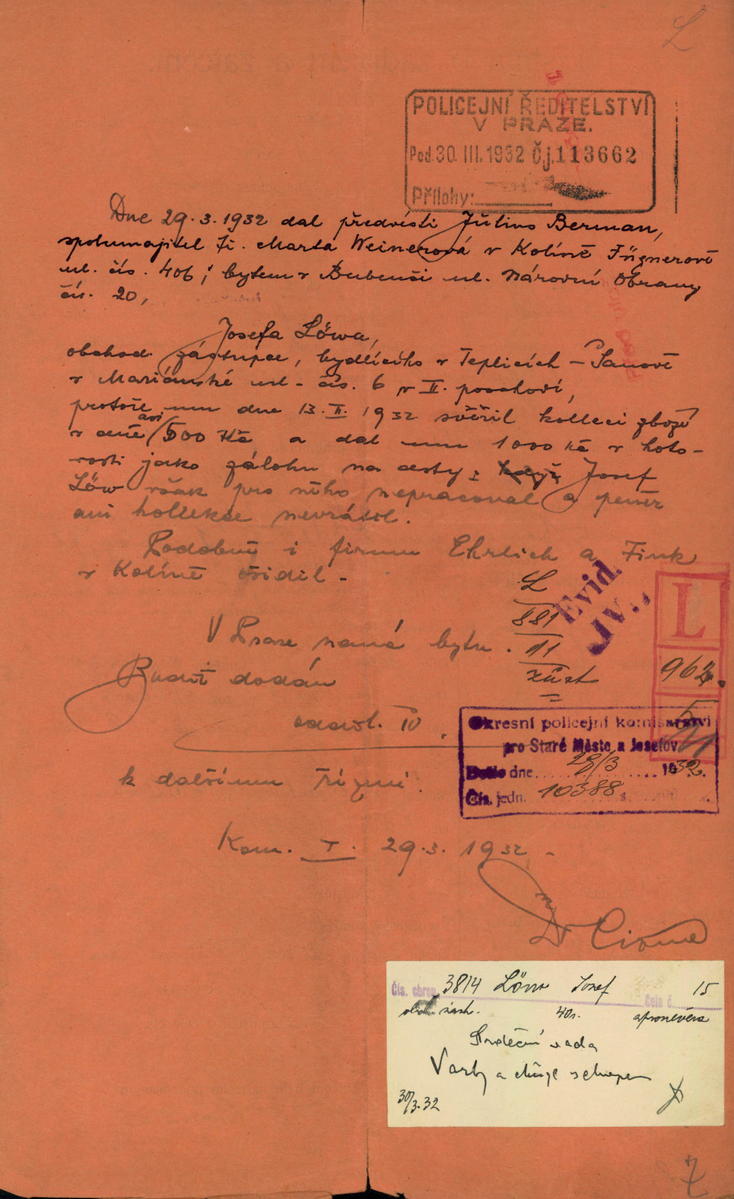 L
POLICEJNÍ ŘEDITELSTVÍ
V PRAZE.
Pod. 30. III. 1932 Č.j. 113662
Přílohy:
Dne 29.3.1932 dal předvésti Julius Berman,
spolumajitel fi. Marta Weinerová v Kolíně Fügnerově
ul. čís. 406, bytem v Bubenči ul. Národní Obrany
čís. 20,
Josefa Löwa,
obchod. zástupce, bydlícího v Teplicích - Šanově
v Mariánské ul. čís. 6 v II. poschodí,
protože mu dne 13.II. 1932 svěřil kollekci zboží
v ceně asi 500 Kč a dal mu 1000 Kč v hoto-
vosti jako zálohu na cesty; Josef
Löw však pro něho nepracoval a peněz
ani kollekce nevrátil.
Podobně i firmu Ehrlich a Fink
v Kolíně ošidil -
L
881
11
Evid.
IV.
L
962.
V Praze nemá bytu.
Budiž dodán
odděl. IV.
k dalšímu řízení.
Okresní policejní komisařství
pro Staré Město a Josefov.
Došlo dne 29/3 1932.
Čís. jedn. 10388
Kom. I. 29.3. 1932 -
Čís. chrop. 3814 Löw Josef Cela č. 15
obch. zást. 40r. zpronevěra
Srdeční vada
Vazby a chůze schopen
30/3.32
7